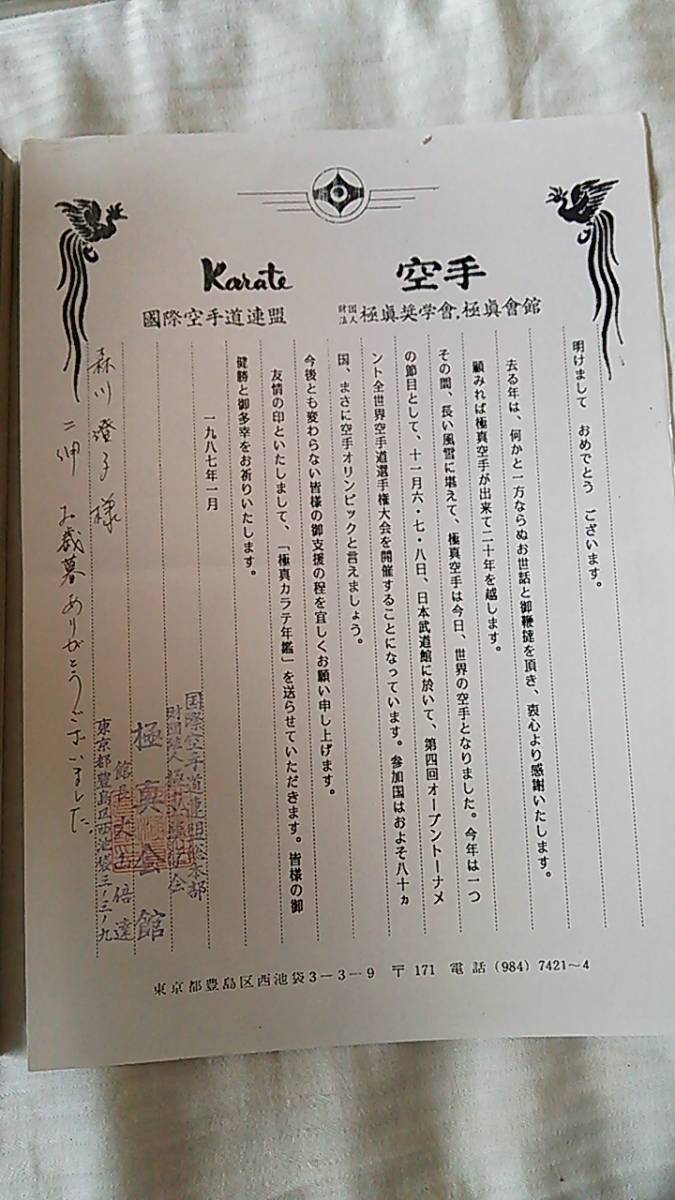 Karate 空手
國際空手道連盟 財団法人 極眞奨学會,極眞會館
明けまして おめでとう ございます。
去る年は、何かと一方ならぬお世話と御鞭撻を頂き、衷心より感謝いたします。
顧みれば極真空手が出来て二十年を越します。
その間、長い風雪に堪えて、極真空手は今日、世界の空手となりました。今年は一つ
の節目として、十一月六・七・八日、日本武道館に於いて、第四回オープントーナメ
ント全世界空手道選手権大会を開催することになっています。参加国はおよそ八十ヵ
国、まさに空手オリンピックと言えましょう。
今後とも変わらない皆様の御支援の程を宜しくお願い申し上げます。
友情の印といたしまして、「極真カラテ年鑑」を送らせていただきます。皆様の御
健勝と御多幸をお祈りいたします。
一九八七年一月
国際空手道連盟総本部
財団法人極真奨学会
極真会館
館長 大山倍達
東京都豊島区西池袋三ノ三ノ九
森川澄子様
お歳暮ありがとうございました。
東京都豊島区西池袋3-3-9 〒171 電話 (984) 7421~4